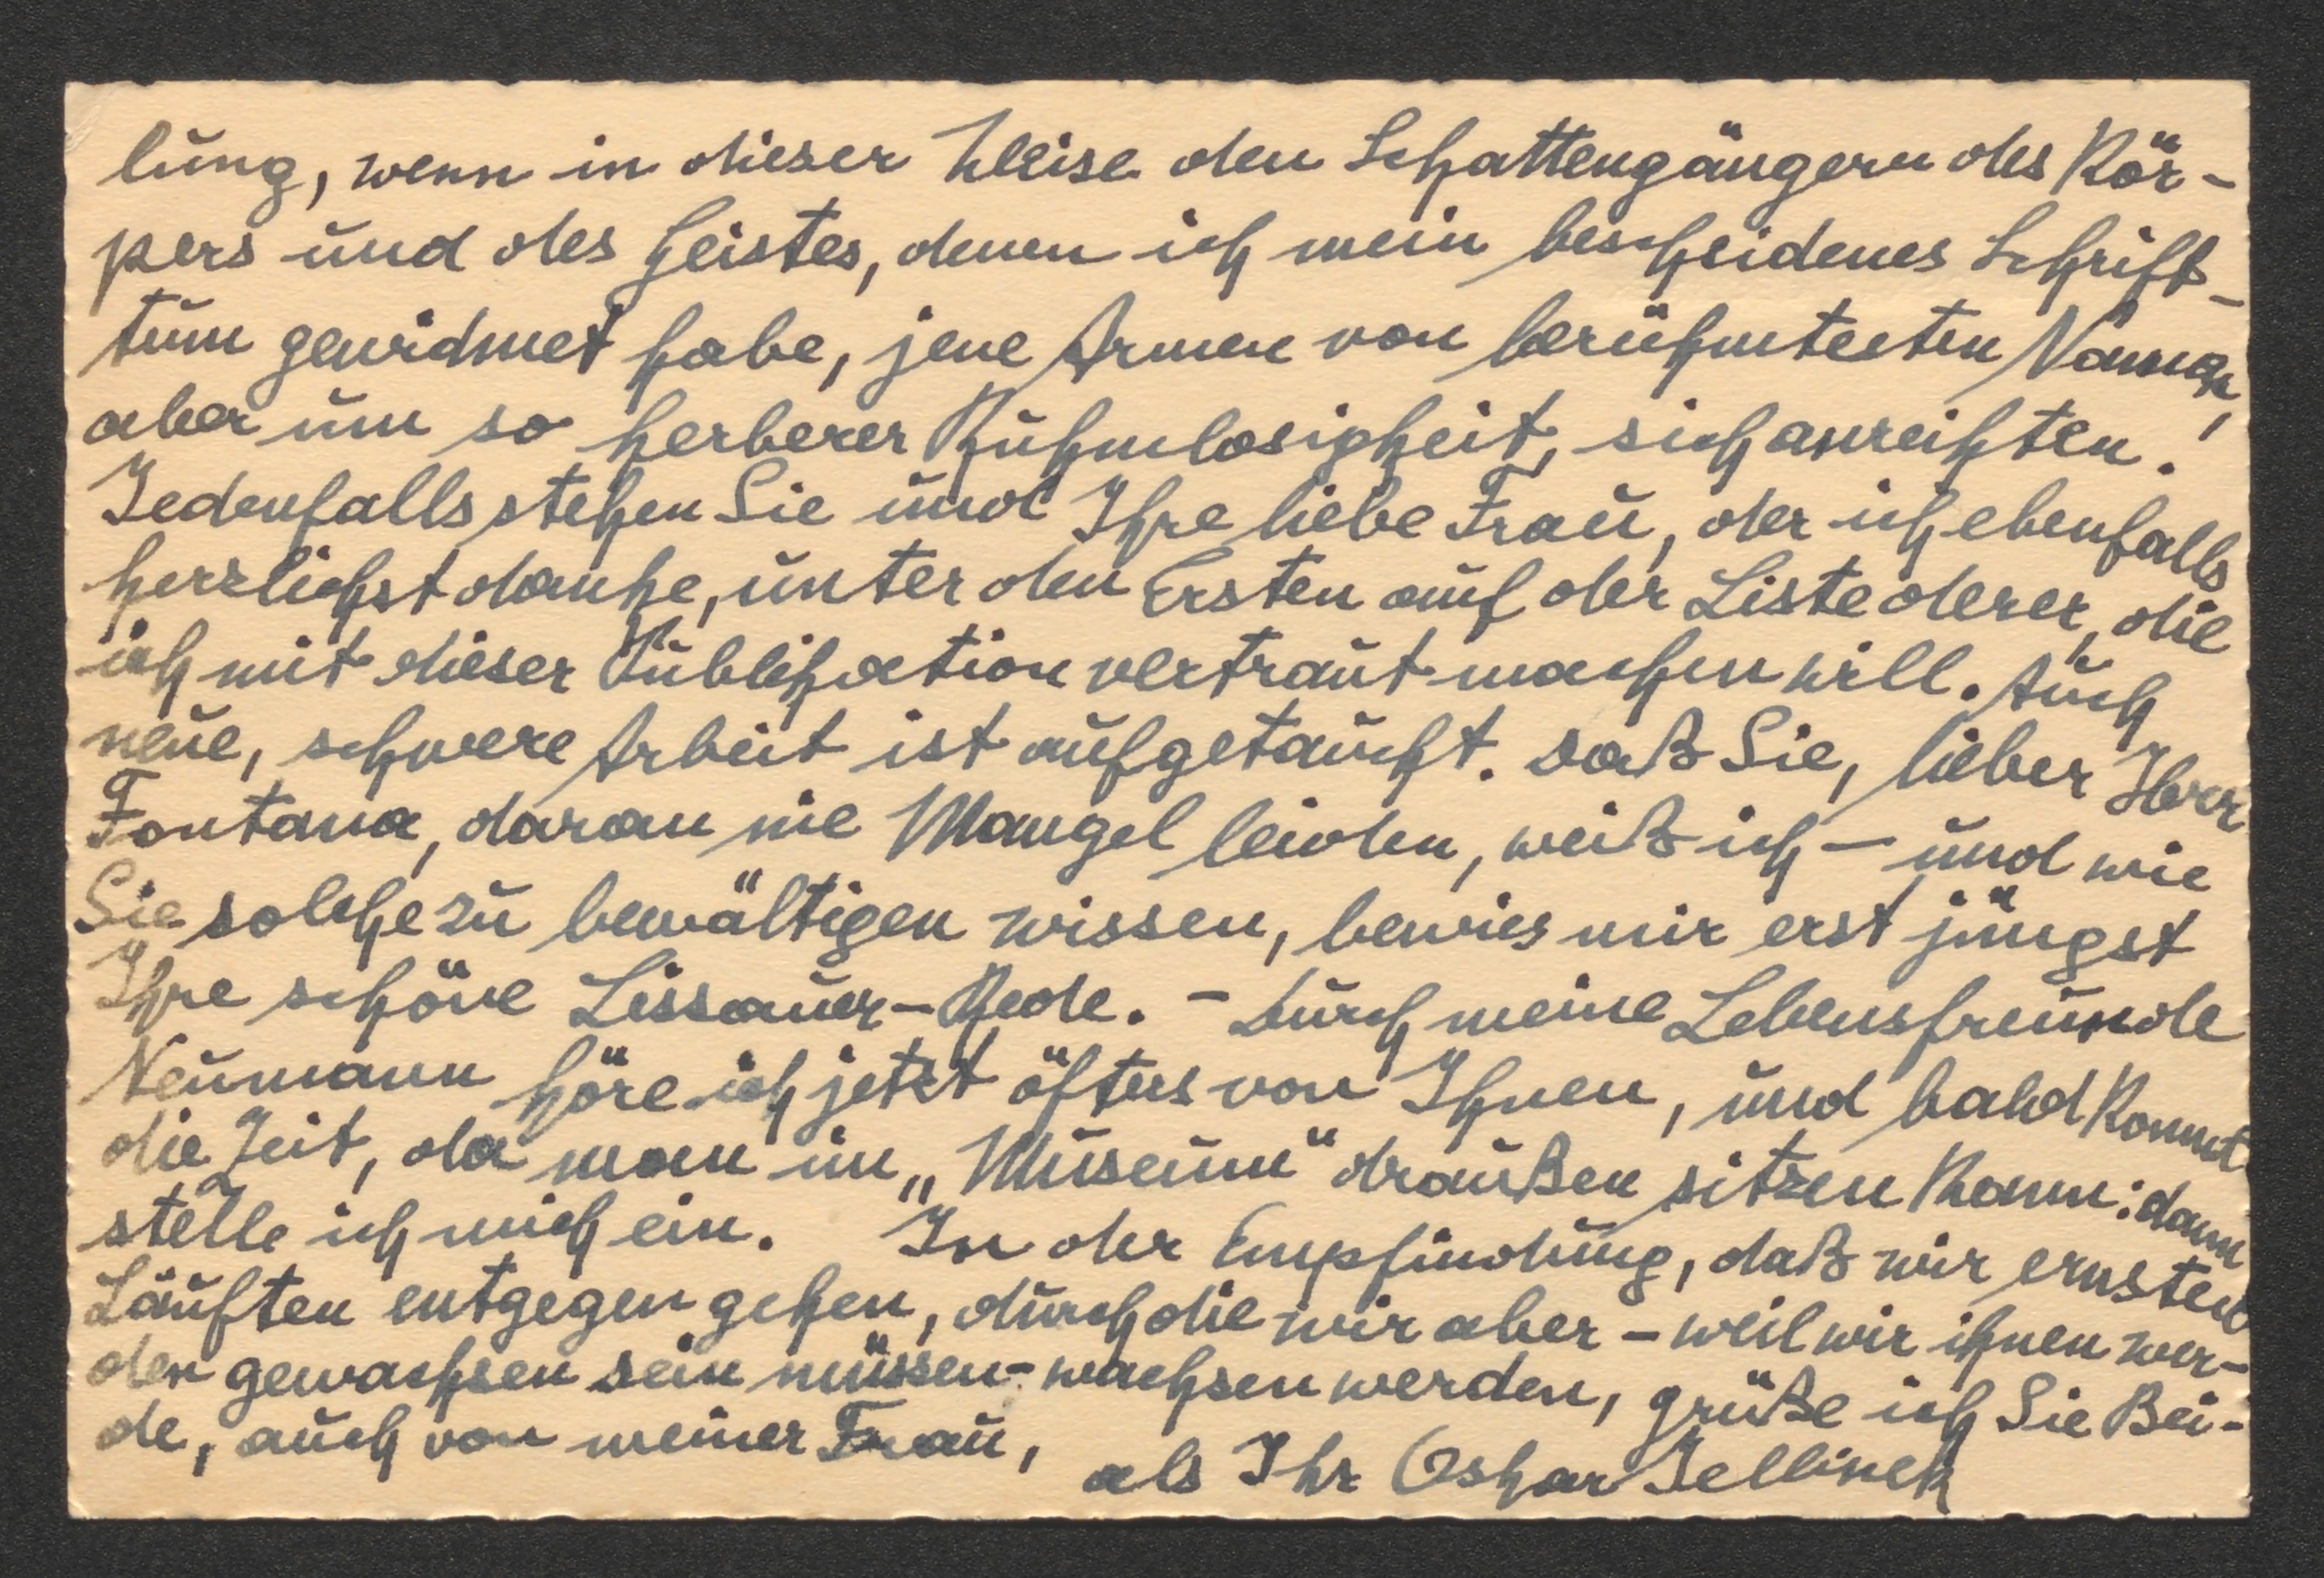 lung, wenn in dieser Weise den Schattengängern des Kör-
pers und des Geistes, denen ich mein bescheidenes Schrift-
tum gewidmet habe, jene Armen von berühmtesten Namen,
aber um so herberer Ruhmlosigkeit, sich anreihten!
Jedenfalls stehen Sie und Ihre liebe Frau, der ich ebenfalls
herzlichst danke, unter den Ersten auf der Liste derer, die
ich mit dieser Publikation vertraut machen will. Auch
neue, schwere Arbeit ist aufgetaucht. Daß Sie, lieber Herr
Fontana, daran nie Mangel leiden, weiß ich – und wie
Sie solche zu bewältigen wissen, bewies mir erst jüngst
Ihre schöne Lissauer-Rede. – Durch meine Lebensfreunde
Neumann höre ich jetzt öfters von Ihnen, und bald kommt
die Zeit, da man im „Museum" draußen sitzen kann: dann
stelle ich mich ein. In der Empfindung, daß wir ernsten
Läuften entgegen gehen, durch die wir aber – weil wir ihnen wer-
den gewachsen sein müssen – wachsen werden, grüße ich Sie Bei-
de, auch von meiner Frau, als Ihr Oskar Jellinek